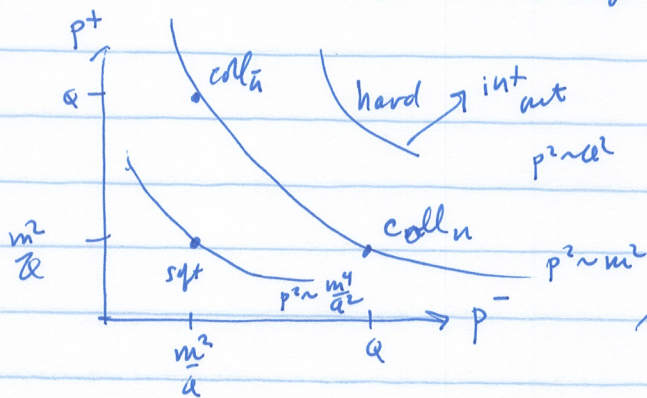 p+
Q
coll n̄
hard
int out
p² ~ Q²
m²/Q
soft
coll n
p² ~ m²
p² ~ m⁴/Q²
p⁻
m²/Q
Q